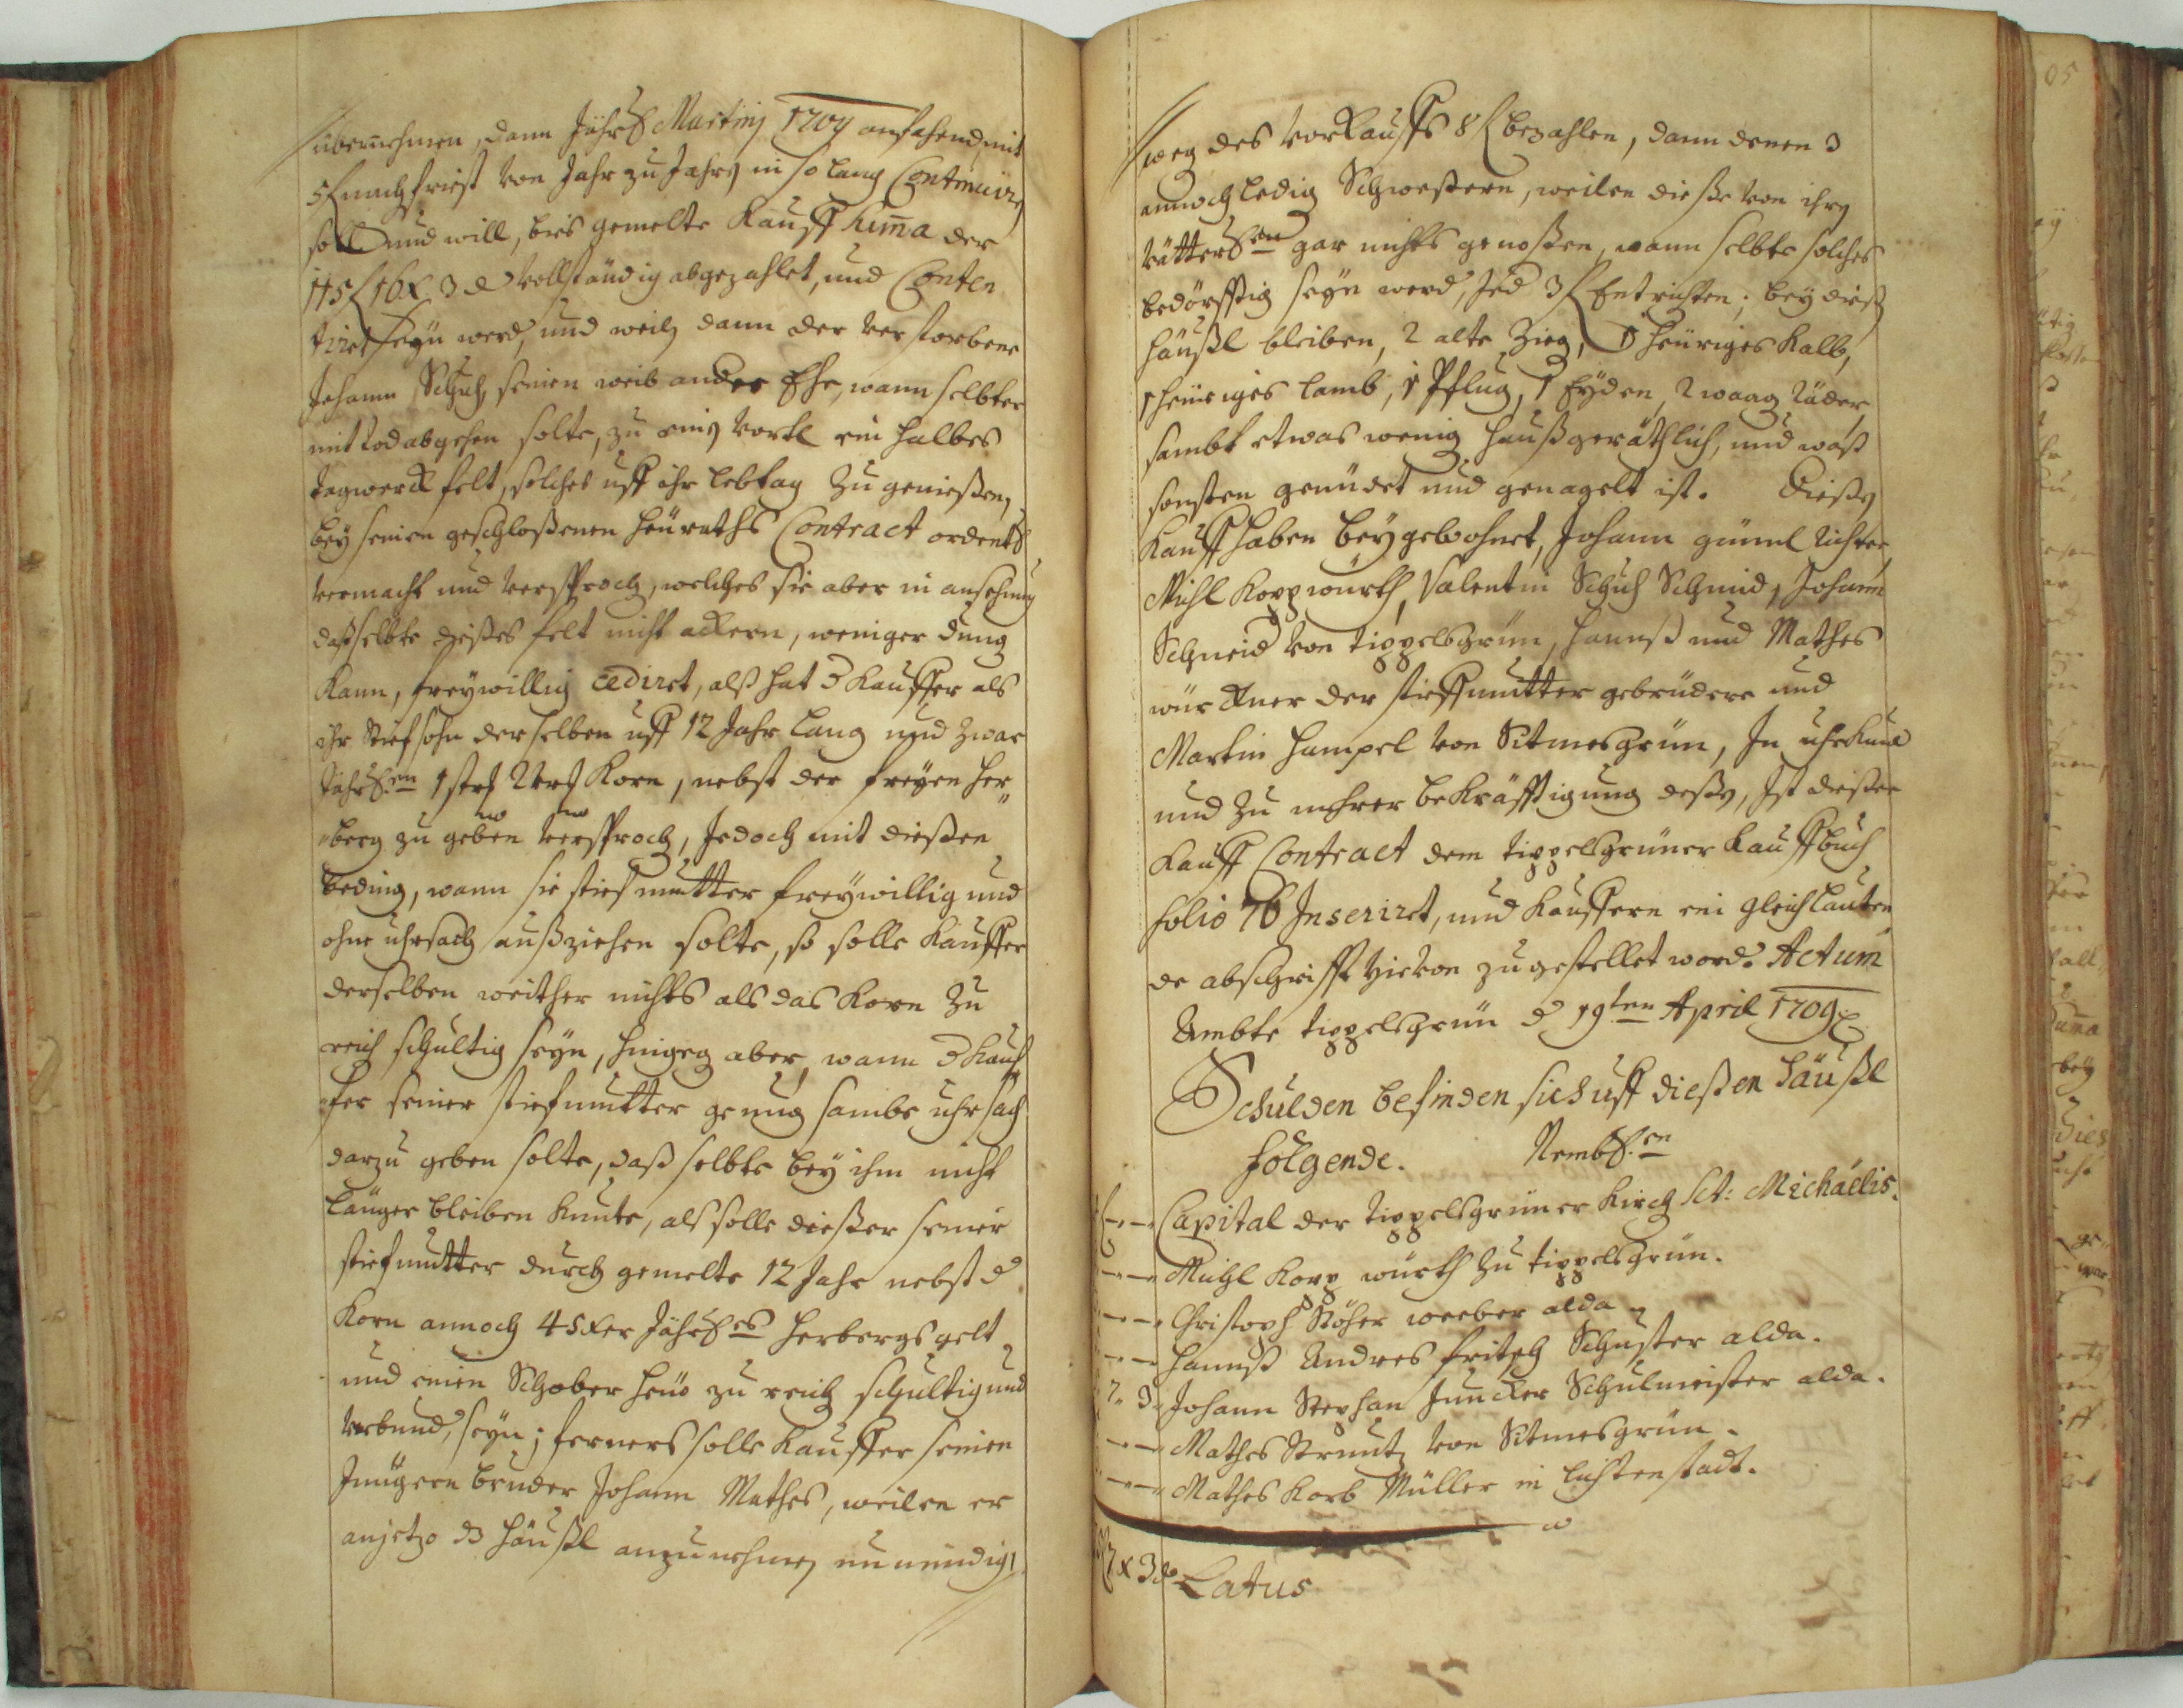 übernehmen, dann Jährl Martinj 1709 anfahend, mit
5 f nachfriest von Jahr zu Jahrn in so lang Continuirn
soll und will, bies gemelte Kauff Suma der
115 f 16 x 3 d vollständig abgezahlet, und Conten
tiret seyn werd, und weiln dann der verstorbene
Johann Schuh, seinen weib ander Ehe, wann selbter
mit Tod abgehen solte, zu einen vortl ein halbes
tagwerck felt, solches uff ihr lebtag zu genießen,
bey seinen geschloßenen heuraths Contract ordentl
vermacht und versproch, welches sie aber in ansehung
daß selbte dießes felt nicht ackern, weniger dung
kann, freywillig cediret, alß hat d Kauffer als
ihr Stiefsohn derselben uff 12 Jahr lang und zwar
Jährl en 1 str 2 vrt Korn, nebst der freyen her
berg zu geben versproch, Jedoch mit dießen
beding, wann sie stiefmutter freywillig und
ohne uhrsach außziehen solte, so solle Kauffer
derselben weither nichts als das Korn zu
reich schultig seyn, hingeg aber, wann d Kauf
fer seiner stiefmutter genug sambe uhrsach
darzu geben solte, daß selbte bey ihm nicht
länger bleiben kunte, als solle dießer seiner
stiefmutter durch gemelte 12 Jahr nebst d
Korn annoch 45 xer Jährl es herbergs gelt
und einen Schober heüö zu reich schultig und
verbund, seyn; ferners solle Kauffer seinen
Jüngern bruder Johann Mathes, weilen er
anjetzo ds häußl anzunehmen unmündig,
weg des vorkauffs 8 f bezahlen, dann denen 3
annoch ledig Schwestern, weilen dieße von ihrn
vätterl en gar nichts genoßen, wann selbte solches
bedörfftig seyn werd, Jed 3 f Entrichten; bey dieß
häußl bleiben, 2 alte Zieg, 1 heüriges Kalb,
1 heüriges lamb, 1 Pflug, 1 Eyden, 2 waag räder,
sambt etwas wenig haußgeräthlich, und waß
sonsten genüdet und genagelt ist. Dießen
Kauff haben beygewohnet, Johann güml Richter,
Michl Kopp würth, Valentin Schuh Schmid, Johann
Schneid von Tippelsgrün, hannß und Mathes
würckner der stieffmutter gebrüdere und
Martin Hampel von Sitmesgrün, In uhrkund
und zu mehrer bekräfftigung deßen, Ist dießer
Kauff Contract dem Tippelsgrüner Kauffbuch
folio 76 Inseriret, und Kauffern ein gleichlauten
de abschrifft hievon zugestellet word. Actum
Ambte Tippelsgrün d 19ten April 1709
Schulden befinden sich uff dießen Häußl
folgende. Nembl. en
Capital der Tippelsgrüner Kirch Sct: Michaelis.
Michl Kopp würth zu Tippelsgrün.
Christoph Stöhr weeber alda
Hannß Andres fritsch Schuster alda.
7 " 3 " Johann Stephan Juncker Schulmeister alda.
Mathes Struntz von Sitmesgrün.
Mathes Korb Müller in Lichtenstadt.
7 x 3 d Latus